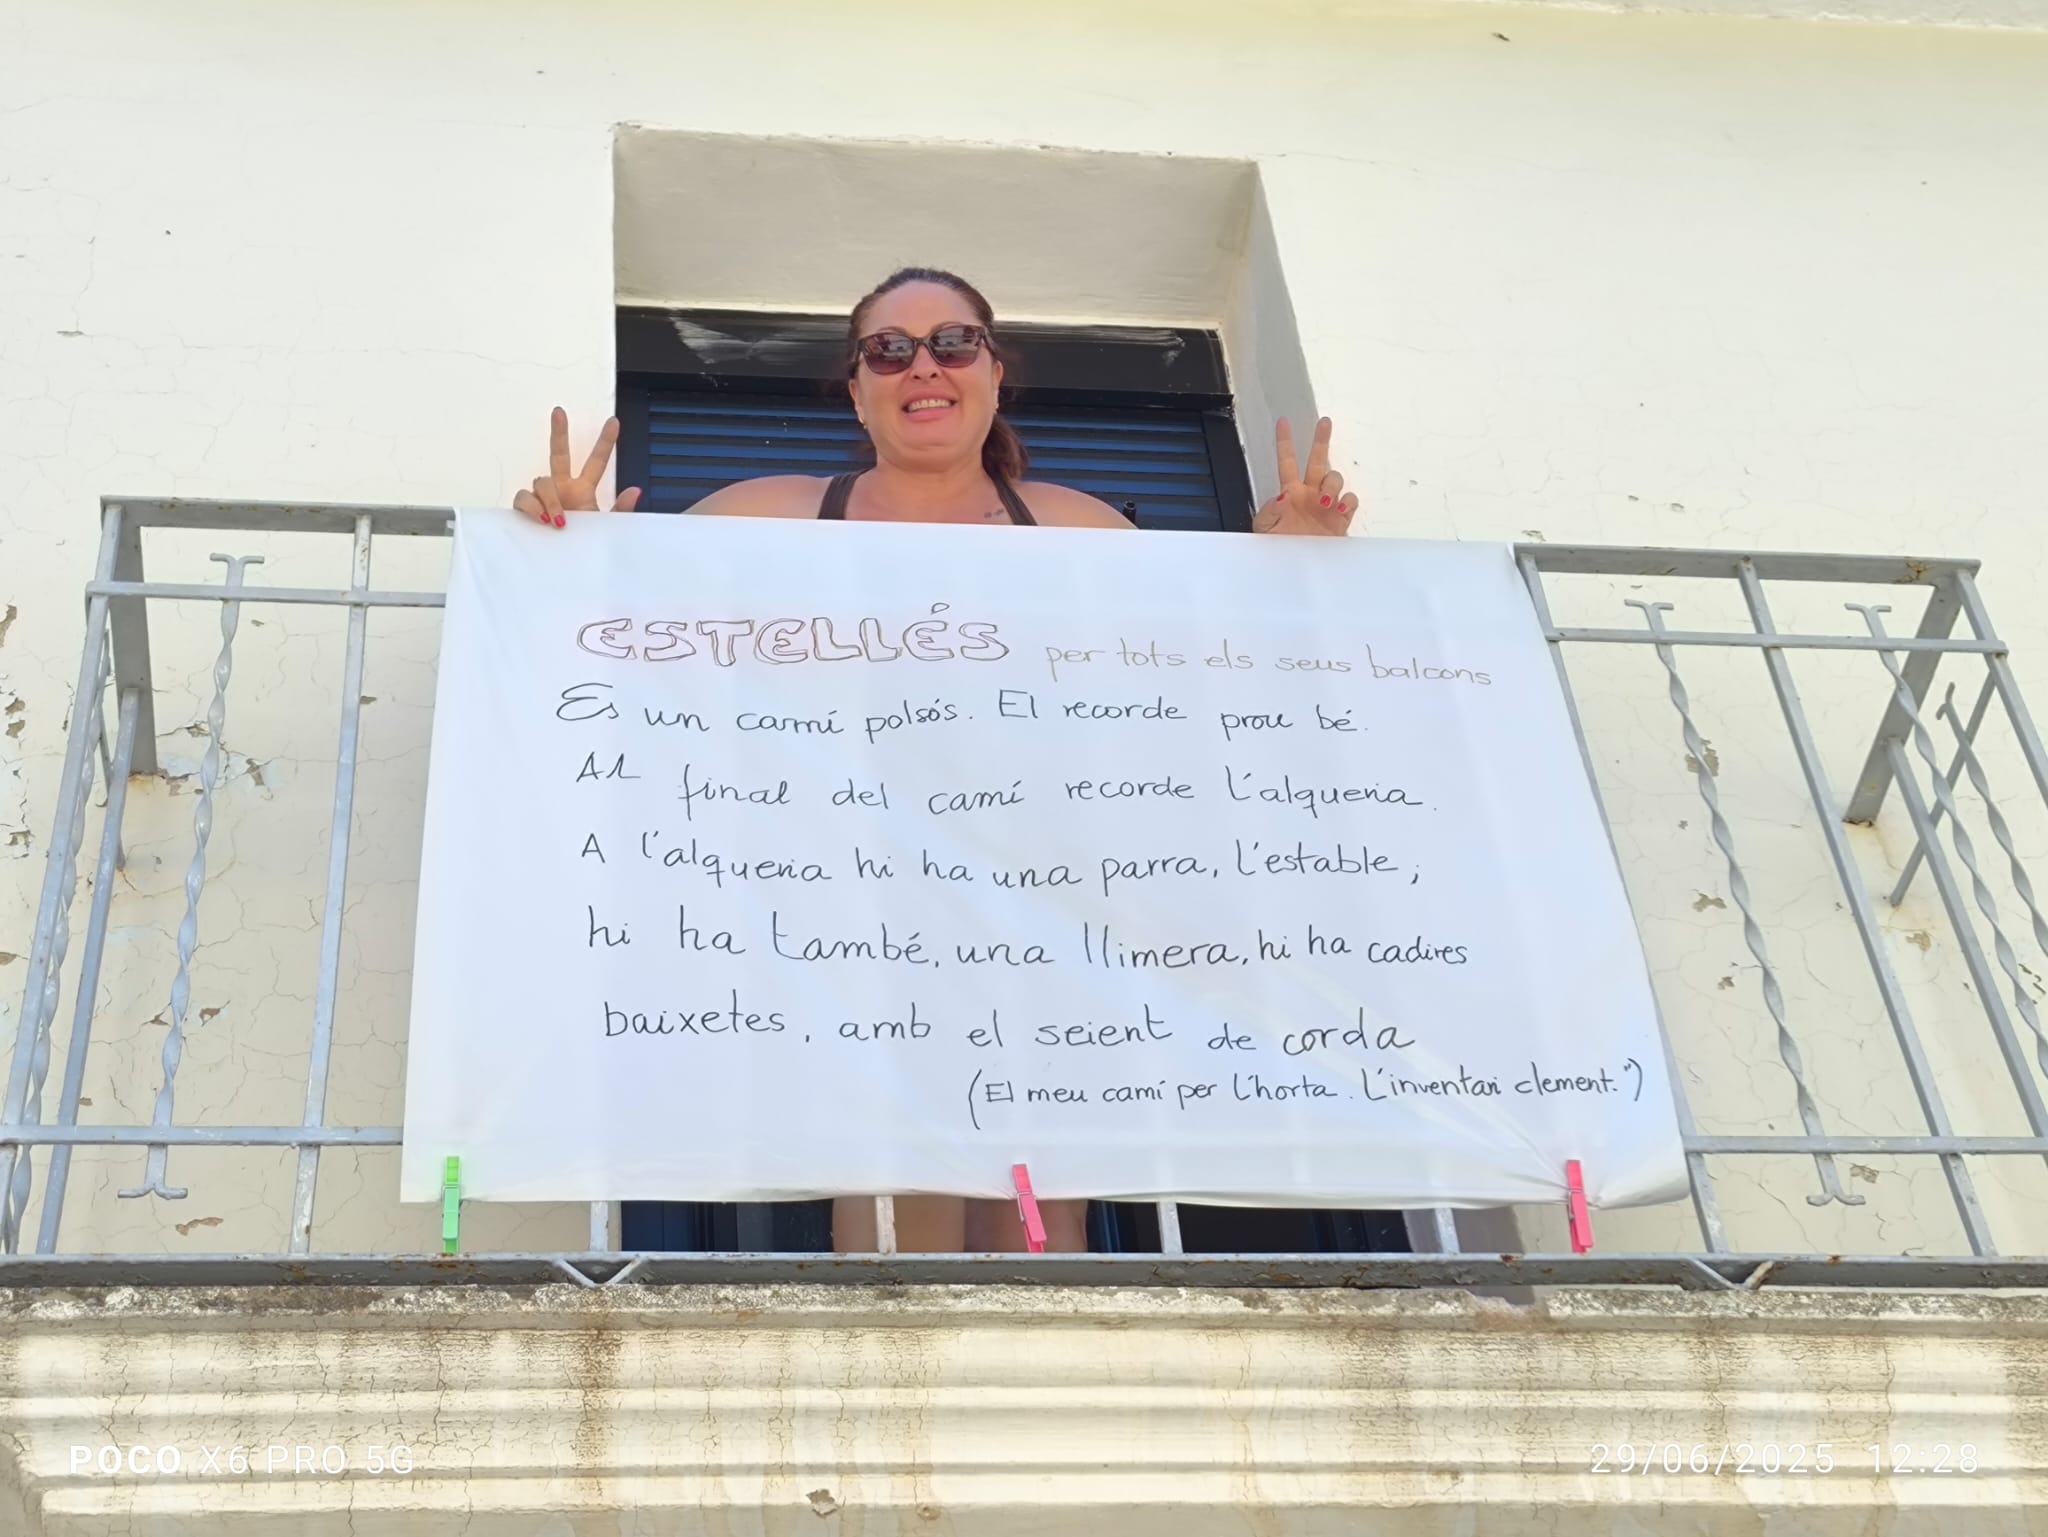 ESTELLÉS per tots els seus balcons
Es un camí polsós. El recorde prou bé.
Al final del camí recorde l'alqueria.
A l'alqueria hi ha una parra, l'estable;
hi ha també, una llimera, hi ha cadires
baixetes, amb el seient de corda
(El meu camí per l'horta. L'inventari clement.")
POCO X6 PRO 5G
29/06/2025 12:28